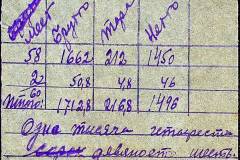 мест Брутто Тара Нетто
58 1662 212 1450
2 50,8 4,8 46
Итого 60 1712,8 216,8 1496
Одна тысяча четыреста
девяност шесть